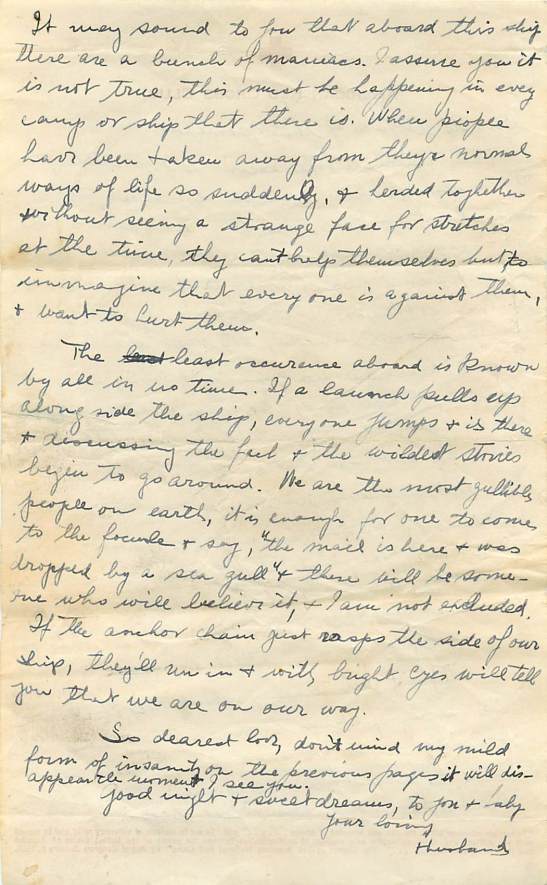 It may sound to you that aboard this ship
there are a bunch of maniacs. I assure you it
is not true, this must be happening in every
camp or ship that there is. When piopee
have been taken away from theyr normal
ways of life so suddenly, & herded toghether
without seeing a strange face for stretches
at the time, they can't help themselves but to
immagine that every one is against them,
& want to hurt them.
The least occurence aboard is known
by all in no time. If a launch pulls up
along side the ship, everyone jumps & is there
& discussing the fact & the wildest stories
begin to go around. We are the most gullible
people on earth, it is enough for one to come
to the focusle & say, "the mail is here & was
dropped by a sea gull" & there will be some-
one who will believe it, & I am not excluded.
If the anchor chain just rasps the side of our
ship, they'll run in & with bright eyes will tell
you that we are on our way.
So dearest look, don't mind my mild
form of insanity on the previous pages it will dis-
appear the moment I see you.
good night & sweet dreams, to you & baby
Your loving
Husband